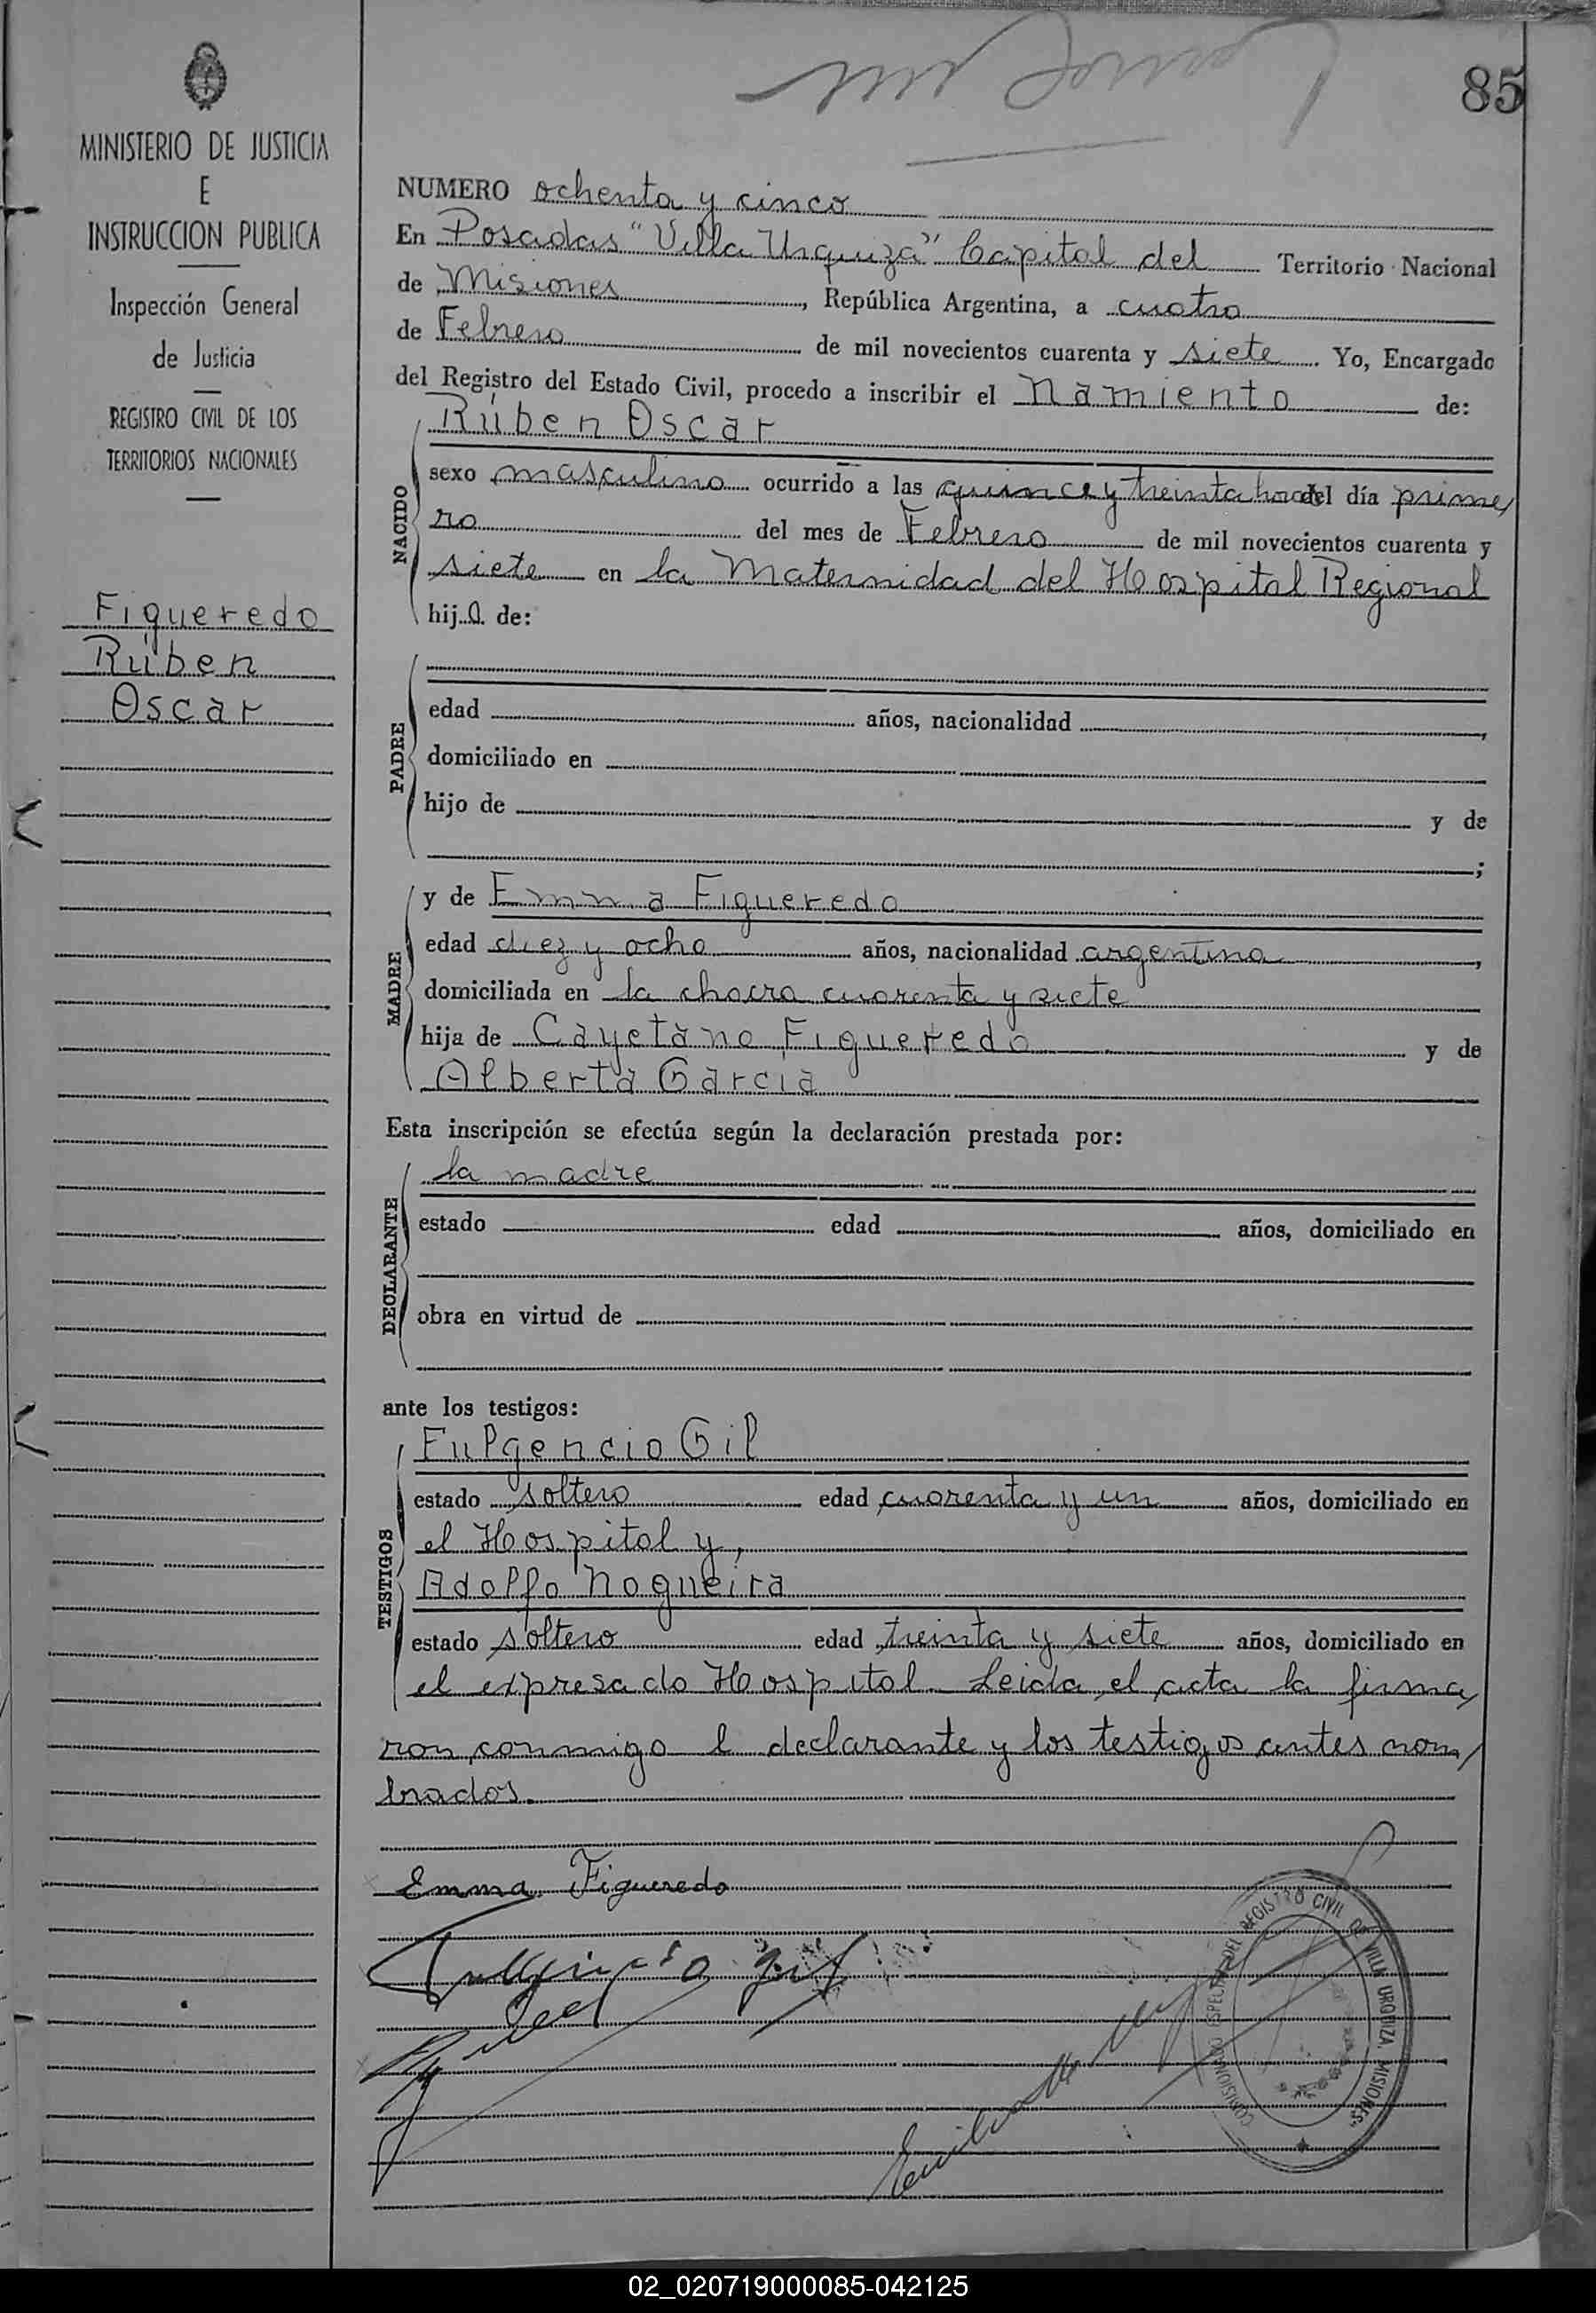 85
MINISTERIO DE JUSTICIA
E
INSTRUCCION PUBLICA
Inspección General
de Justicia
REGISTRO CIVIL DE LOS
TERRITORIOS NACIONALES
Figueredo
Rúben
Oscar
NUMERO ochenta y cinco
En Posadas "Villa Urquiza" Capital del Territorio Nacional
de Misiones, República Argentina, a cuatro
de Febrero de mil novecientos cuarenta y siete. Yo, Encargado
del Registro del Estado Civil, procedo a inscribir el Namiento de:
NACIDO
Rúben Oscar
sexo masculino ocurrido a las quince y treinta horas del día prime/
ro del mes de Febrero de mil novecientos cuarenta y
siete en la Maternidad del Hospital Regional
hijo de:
PADRE
edad años, nacionalidad ,
domiciliado en
hijo de y de
;
MADRE
y de Emma Figueredo
edad diez y ocho años, nacionalidad argentina,
domiciliada en la chacra cuarenta y siete
hija de Cayetano Figueredo y de
Alberta Garcia
Esta inscripción se efectúa según la declaración prestada por:
DECLARANTE
la madre
estado edad años, domiciliado en
obra en virtud de
ante los testigos:
TESTIGOS
Fulgencio Gil
estado soltero edad cuarenta y un años, domiciliado en
el Hospital y,
Adolfo Nogueira
estado soltero edad treinta y siete años, domiciliado en
el expresado Hospital. Leida el acta la firma/
ron conmigo l declarante y los testigos antes nom/
brados.
Emma Figueredo
Fulgencio Gil
REGISTRO CIVIL DE VILLA URQUIZA. MISIONES
02_020719000085-042125